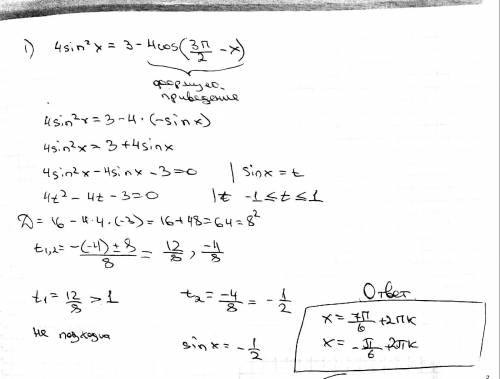 1) 4sin²x = 3 - 4cos(3π/2 - x)
формула
приведение
4sin²x = 3 - 4·(-sinx)
4sin²x = 3 + 4sinx
4sin²x - 4sinx - 3 = 0 | sinx = t
4t² - 4t - 3 = 0 | t -1 ≤ t ≤ 1
D = 16 - 4·4·(-3) = 16 + 48 = 64 = 8²
t₁,₂ = (-(-4) ± 8)/8 = 12/8, -4/8
t₁ = 12/8 > 1 t₂ = -4/8 = -1/2
не подходит sinx = -1/2
Ответ
x = 7π/6 + 2πk
x = -π/6 + 2πk